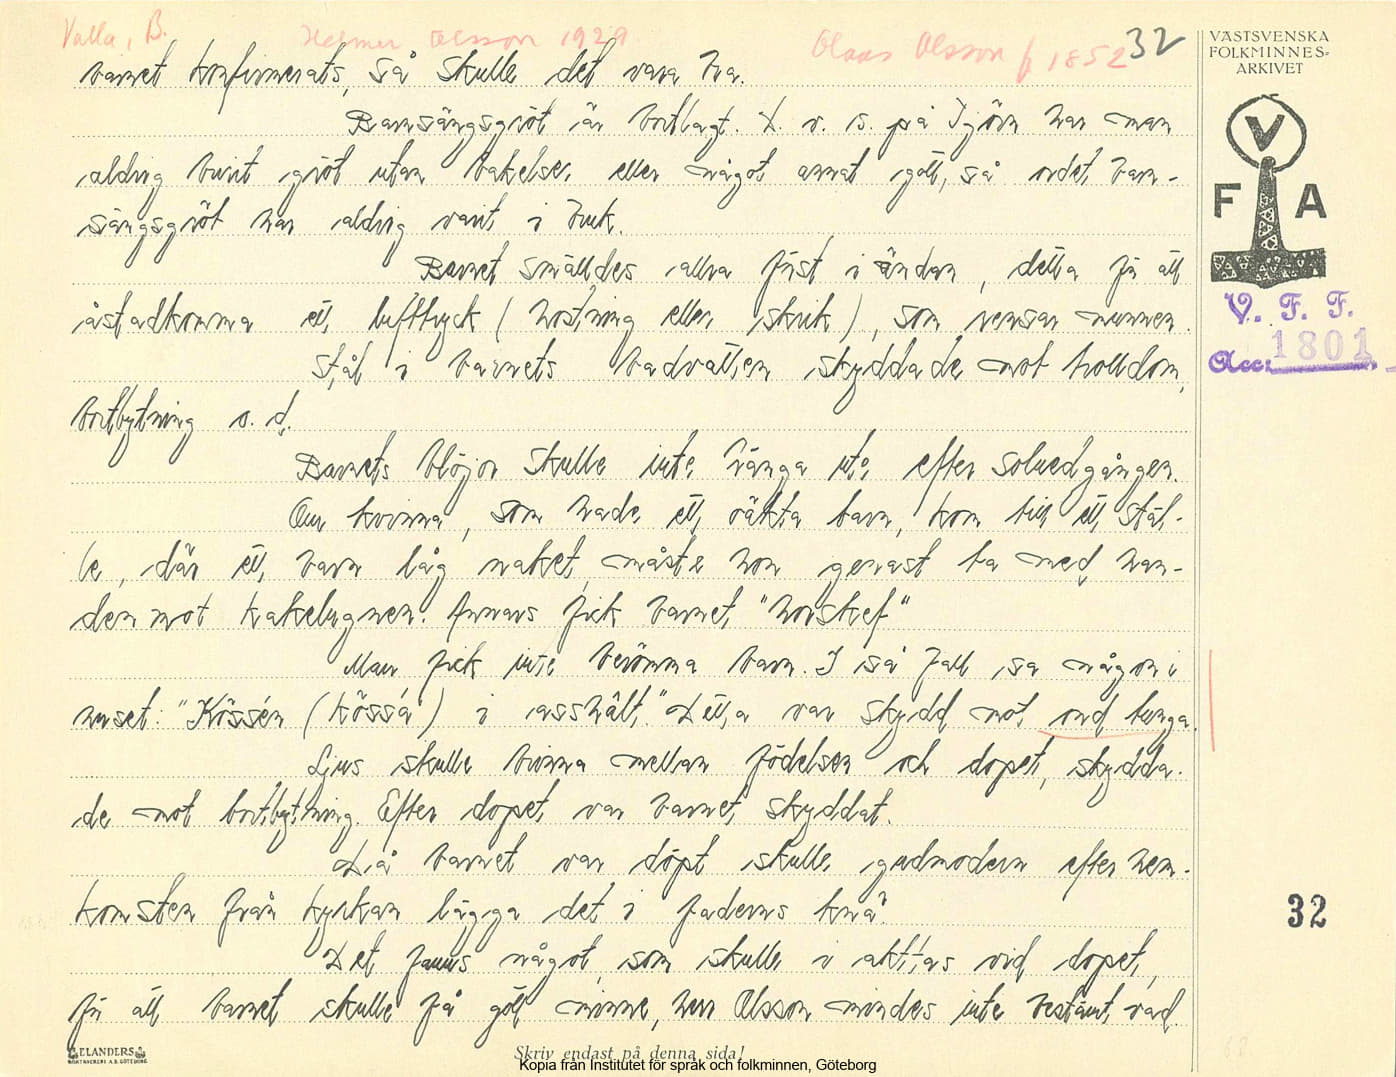 Valla, B. Helmer Olsson 1929 Olaus Olsson f 1852 32
VÄSTSVENSKA
FOLKMINNES-
ARKIVET
barnet konfirmerats, så skulle det vara bra.
Barnsängsgröt är bortlagt. D. v. s. på Tjörn har man
aldrig burit gröt utan bakelser eller något annat gott, så ordet barn-
sängsgröt har aldrig varit i bruk.
Barnet smälldes allra först i ändan, detta för att
åstadkomma ett lufttryck (hostning eller skrik), som rensar munnen.
Stål i barnets badvatten skyddade mot trolldom,
bortbytning o. d.
Barnets blöjor skulle inte hänga ute efter solnedgången.
Om kvinna, som hade ett oäkta barn, kom till ett stäl-
le, där ett barn låg naket, måste hon genast ta med han-
den mot kakelugnen. Annars fick barnet "horskef"
Man fick inte berömma barn. I så fall sa någon i
huset: "Kössén (kössá) i asshålt." Detta var skydd mot ond tunga.
Ljus skulle brinna mellan födelsen och dopet, skydda-
de mot bortbytning. Efter dopet var barnet skyddat.
Då barnet var döpt skulle gudmodern efter hem-
komsten från kyrkan lägga det i faderns knä.
Det fanns något, som skulle i akttas vid dopet,
för att barnet skulle få gott minne, herr Olsson mindes inte bestämt vad
V
F A
V. F. F.
Acc: 1801
32
ELANDERS
BOKTRYCKERI A.B. GÖTEBORG
Skriv endast på denna sida!
Kopia från Institutet för språk och folkminnen, Göteborg